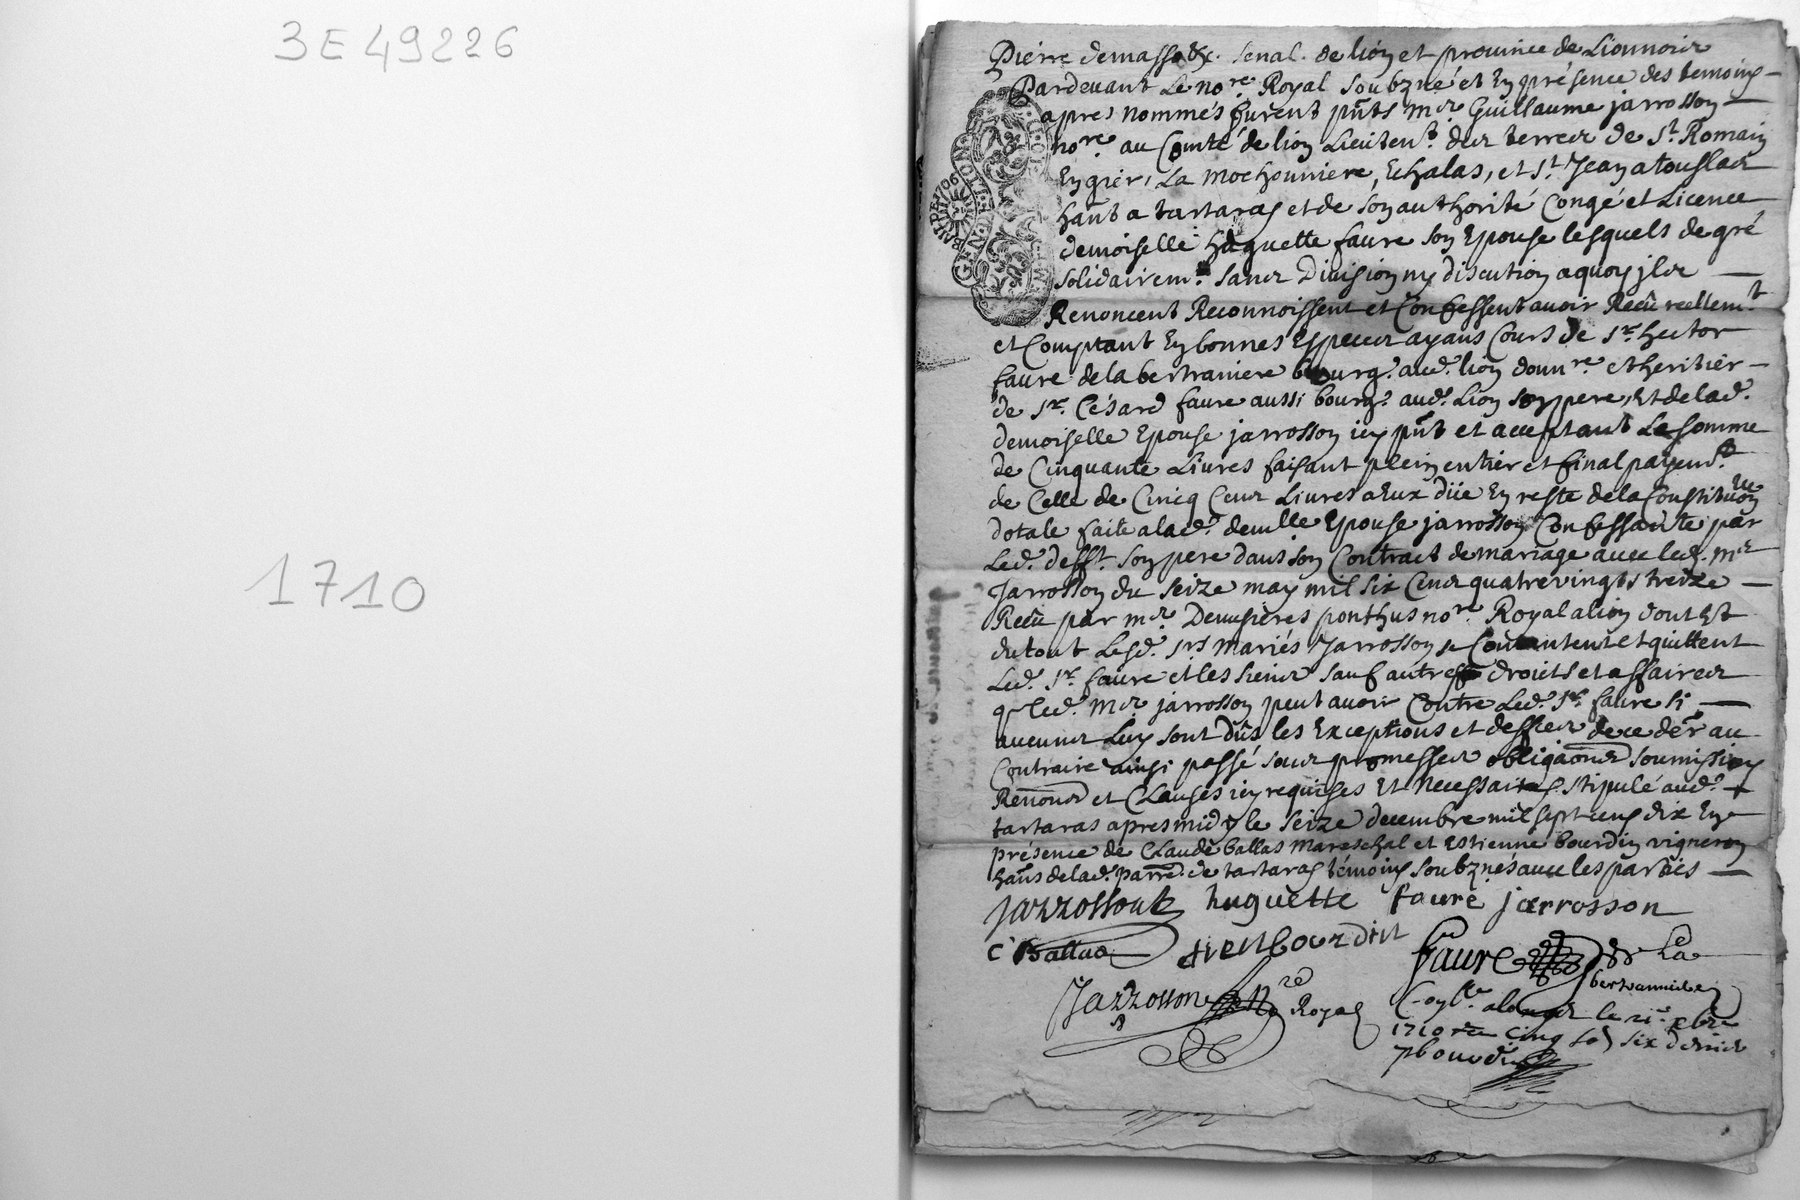 3 E 49226
1710
Pierre de masso &c. senal. de lion et province de Lionnois
Pardevant Le no.re Royal soubzné et En présence des temoins
apres nommés furent pñts M.e Guillaume jarrosson
no.re au Comté de lion Lieuten.t des terres de S.t Romain
En gier, La Mochonniere, Echalas, et S.t Jean a touslas
hañt a tartaras et de son authorité Congé et Licence
demoiselle huguette faure son Epouse lesquels de gré
solidairem.t sans Division ny discution a quoy jls
Renoncent Reconnoissent et Confessent avoir Receu reellem.t
et Comptant En bonnes Especes ayans Cours de S.r hector
faure de la bertraniere bourg.s aud. lion donn.re et heritier
de S.r Césard faure aussi bourg.s aud. Lion son pere, Et de lad.
demoiselle Epouse jarrosson icy pñt et acceptant La somme
de Cinquante Livres faisant plein entier et final payem.t
de Celle de Cincq Cens Livres a Eux düe En reste de la Constitution
dotale faite a lad. demlle Epouse jarrosson Confessante par
Led. deff.t son pere dans son Contract de mariage avec led. M.e
Jarrosson du seize may mil six Cens quatre vingts treize
Receu par m.e ponthus no.re Royal a lion dont Et
du tout Lesd. s.rs mariés Jarrosson se Contentent et quittent
Led. S.r faure et les siens sauf autres droits et affaires
q. led. M.e jarrosson peut avoir Contre Led. S.r faure si
aucuns Luy sont dûs les Exceptions et deffies de ce dér au
Contraire ainsi passé sous promesses obligaons soumission
Renons et Clauses icy requises Et Necessaires stipulé aud.
tartaras apres midy le seize decembre mil sept cens dix En
présence de Claude ballas Mareschal et Estienne bourdin vigneron
hañs de lad. parr. de tartaras témoins soubznés avec les parties
Jarrosson huguette faure jarrosson
C Ballas etien bourdin Faure de La
bertranniere
Jarrosson No.re Royal
Con.lle a le 21.e xbre
1710 cinq sols six deniers